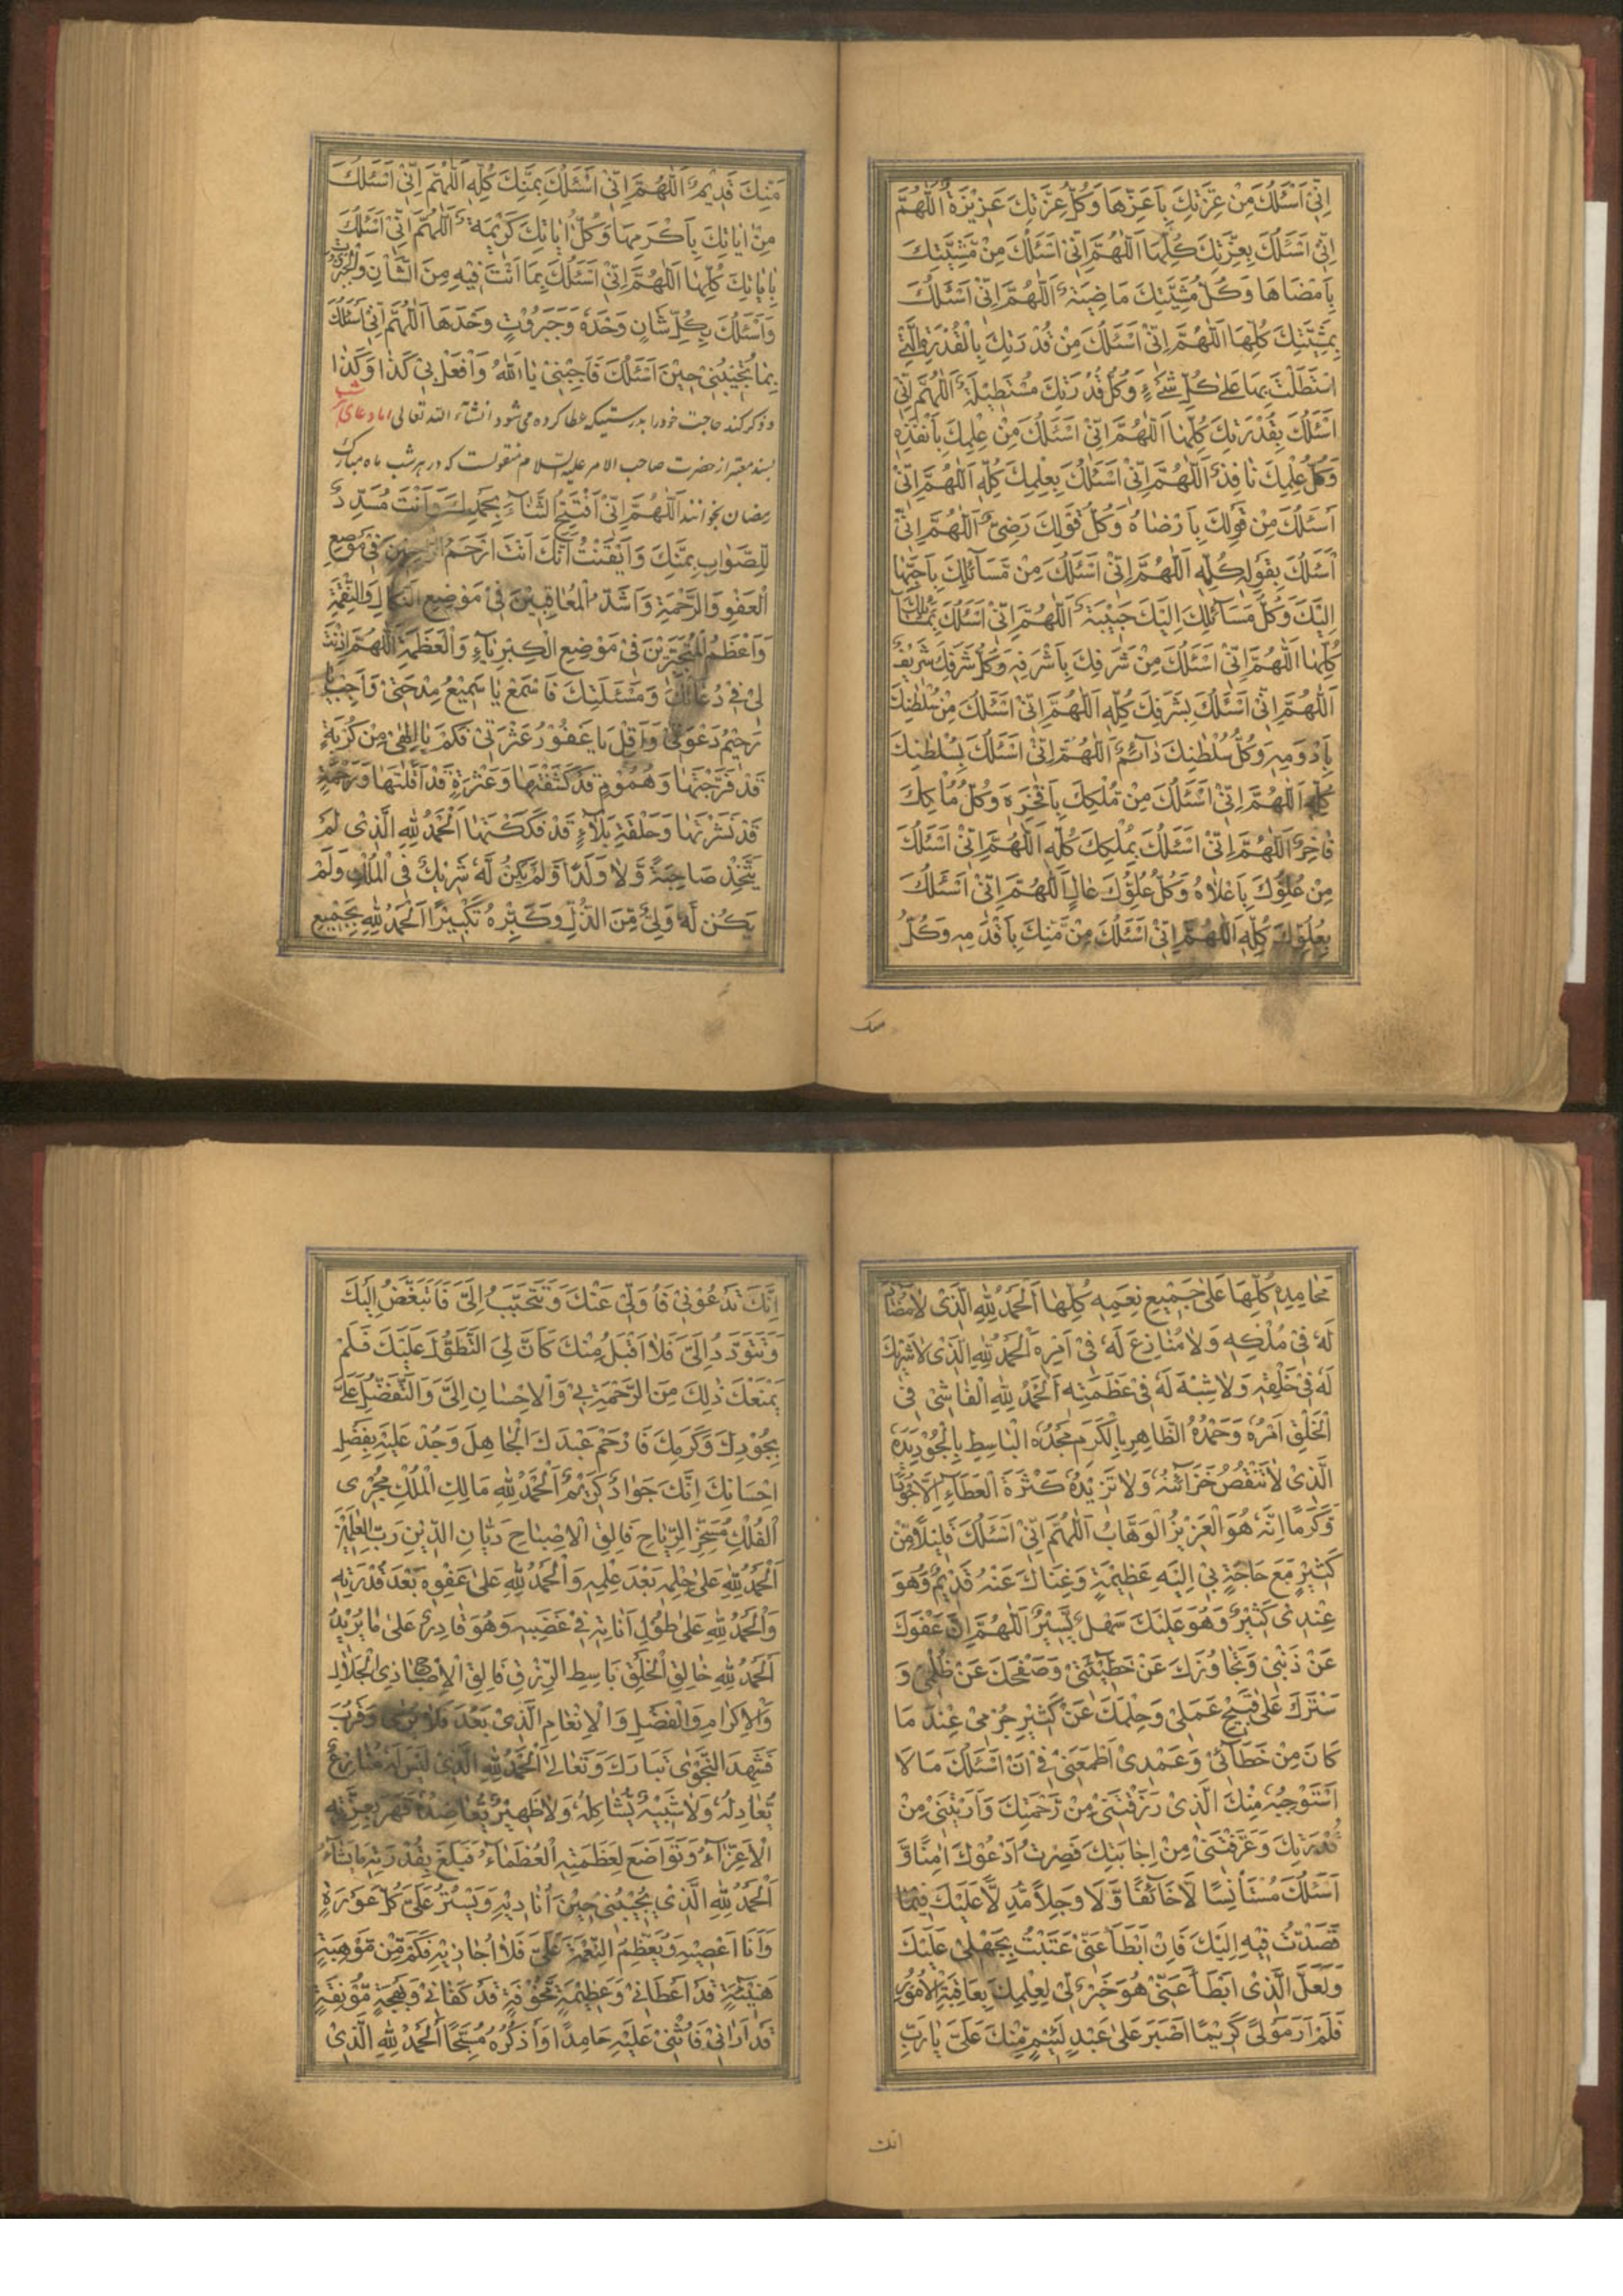 اِنّیْ اَسْئَلُكَ مِنْ عِزَّتِكَ بِاَعَزِّهَا وَكُلُّ عِزَّتِكَ عَزِیْزَةٌ اَللّٰهُمَّ
اِنّیْ اَسْئَلُكَ بِعِزَّتِكَ كُلِّهَا اَللّٰهُمَّ اِنّیْ اَسْئَلُكَ مِنْ مَشِیَّتِكَ
بِاَمْضَاهَا وَكُلُّ مَشِیَّتِكَ مَاضِیَةٌ اَللّٰهُمَّ اِنّیْ اَسْئَلُكَ
بِمَشِیَّتِكَ كُلِّهَا اَللّٰهُمَّ اِنّیْ اَسْئَلُكَ مِنْ قُدْرَتِكَ بِالْقُدْرَةِ الَّتِیْ
اسْتَطَلْتَ بِهَا عَلٰی كُلِّ شَیْءٍ وَكُلُّ قُدْرَتِكَ مُسْتَطِیْلَةٌ اَللّٰهُمَّ اِنّیْ
اَسْئَلُكَ بِقُدْرَتِكَ كُلِّهَا اَللّٰهُمَّ اِنّیْ اَسْئَلُكَ مِنْ عِلْمِكَ بِاَنْفَذِهِ
وَكُلُّ عِلْمِكَ نَافِذٌ اَللّٰهُمَّ اِنّیْ اَسْئَلُكَ بِعِلْمِكَ كُلِّهِ اَللّٰهُمَّ اِنّیْ
اَسْئَلُكَ مِنْ قَوْلِكَ بِاَرْضَاهُ وَكُلُّ قَوْلِكَ رَضِیٌّ اَللّٰهُمَّ اِنّیْ
اَسْئَلُكَ بِقَوْلِكَ كُلِّهِ اَللّٰهُمَّ اِنّیْ اَسْئَلُكَ مِنْ مَسَآئِلِكَ بِاَحَبِّهَا
اِلَیْكَ وَكُلُّ مَسَآئِلِكَ اِلَیْكَ حَبِیْبَةٌ اَللّٰهُمَّ اِنّیْ اَسْئَلُكَ بِمَسَآئِلِكَ
كُلِّهَا اَللّٰهُمَّ اِنّیْ اَسْئَلُكَ مِنْ شَرَفِكَ بِاَشْرَفِهِ وَكُلُّ شَرَفِكَ شَرِیْفٌ
اَللّٰهُمَّ اِنّیْ اَسْئَلُكَ بِشَرَفِكَ كُلِّهِ اَللّٰهُمَّ اِنّیْ اَسْئَلُكَ مِنْ سُلْطٰنِكَ
بِاَدْوَمِهِ وَكُلُّ سُلْطٰنِكَ دَآئِمٌ اَللّٰهُمَّ اِنّیْ اَسْئَلُكَ بِسُلْطٰنِكَ
كُلِّهِ اَللّٰهُمَّ اِنّیْ اَسْئَلُكَ مِنْ مُلْكِكَ بِاَفْخَرِهِ وَكُلُّ مُلْكِكَ
فَاخِرٌ اَللّٰهُمَّ اِنّیْ اَسْئَلُكَ بِمُلْكِكَ كُلِّهِ اَللّٰهُمَّ اِنّیْ اَسْئَلُكَ
مِنْ عُلُوِّكَ بِاَعْلَاهُ وَكُلُّ عُلُوِّكَ عَالٍ اَللّٰهُمَّ اِنّیْ اَسْئَلُكَ
بِعُلُوِّكَ كُلِّهِ اَللّٰهُمَّ اِنّیْ اَسْئَلُكَ مِنْ مَنِّكَ بِاَقْدَمِهِ وَكُلُّ
منك
مَنِّكَ قَدِیْمٌ اَللّٰهُمَّ اِنّیْ اَسْئَلُكَ بِمَنِّكَ كُلِّهِ اَللّٰهُمَّ اِنّیْ اَسْئَلُكَ
مِنْ اٰیَاتِكَ بِاَكْرَمِهَا وَكُلُّ اٰیَاتِكَ كَرِیْمَةٌ اَللّٰهُمَّ اِنّیْ اَسْئَلُكَ
بِاٰیَاتِكَ كُلِّهَا اَللّٰهُمَّ اِنّیْ اَسْئَلُكَ بِمَا اَنْتَ فِیْهِ مِنَ الشَّاْنِ وَالْجَبَرُوْتِ
وَاَسْئَلُكَ بِكُلِّ شَاْنٍ وَحْدَهُ وَجَبَرُوْتٍ وَحْدَهَا اَللّٰهُمَّ اِنّیْ اَسْئَلُكَ
بِمَا تُجِیْبُنِیْ حِیْنَ اَسْئَلُكَ فَاَجِبْنِیْ یَا اَللهُ وَافْعَلْ بِیْ كَذَا وَكَذَا
و ذكر كند حاجت خود را بدرستیكه عطا كرده می شود انشآء الله تعالی اما دعای شب
بسند معتبر از حضرت صاحب الامر علیه السلام منقولست كه در هر شب ماه مبارك
رمضان بخوانند اَللّٰهُمَّ اِنّیْ اَفْتَتِحُ الثَّنَآءَ بِحَمْدِكَ وَاَنْتَ مُسَدِّدٌ
لِلصَّوَابِ بِمَنِّكَ وَاَیْقَنْتُ اَنَّكَ اَنْتَ اَرْحَمُ الرَّاحِمِیْنَ فِیْ مَوْضِعِ
الْعَفْوِ وَالرَّحْمَةِ وَاَشَدُّ الْمُعَاقِبِیْنَ فِیْ مَوْضِعِ النَّكَالِ وَالنَّقِمَةِ
وَاَعْظَمُ الْمُتَجَبِّرِیْنَ فِیْ مَوْضِعِ الْكِبْرِیَآءِ وَالْعَظَمَةِ اَللّٰهُمَّ اَذِنْتَ
لِیْ فِیْ دُعَآئِكَ وَمَسْئَلَتِكَ فَاسْمَعْ یَا سَمِیْعُ مِدْحَتِیْ وَاَجِبْ یَا
رَحِیْمُ دَعْوَتِیْ وَاَقِلْ یَا غَفُوْرُ عَثْرَتِیْ فَكَمْ یَا اِلٰهِیْ مِنْ كُرْبَةٍ
قَدْ فَرَّجْتَهَا وَهُمُوْمٍ قَدْ كَشَفْتَهَا وَعَثْرَةٍ قَدْ اَقَلْتَهَا وَرَحْمَةٍ
قَدْ نَشَرْتَهَا وَحَلْقَةِ بَلَآءٍ قَدْ فَكَكْتَهَا اَلْحَمْدُ لِلّٰهِ الَّذِیْ لَمْ
یَتَّخِذْ صَاحِبَةً وَّلَا وَلَدًا وَّلَمْ یَكُنْ لَهُ شَرِیْكٌ فِی الْمُلْكِ وَلَمْ
یَكُنْ لَهُ وَلِیٌّ مِّنَ الذُّلِّ وَكَبِّرْهُ تَكْبِیْرًا اَلْحَمْدُ لِلّٰهِ بِجَمِیْعِ
مَحَامِدِهِ كُلِّهَا عَلٰی جَمِیْعِ نِعَمِهِ كُلِّهَا اَلْحَمْدُ لِلّٰهِ الَّذِیْ لَا مُضَآدَّ
لَهُ فِیْ مُلْكِهِ وَلَا مُنَازِعَ لَهُ فِیْ اَمْرِهِ اَلْحَمْدُ لِلّٰهِ الَّذِیْ لَا شَرِیْكَ
لَهُ فِیْ خَلْقِهِ وَلَا شِبْهَ لَهُ فِیْ عَظَمَتِهِ اَلْحَمْدُ لِلّٰهِ الْفَاشِیْ فِی
الْخَلْقِ اَمْرُهُ وَحَمْدُهُ الظَّاهِرِ بِالْكَرَمِ مَجْدُهُ الْبَاسِطِ بِالْجُوْدِ یَدَهُ
الَّذِیْ لَا تَنْقُصُ خَزَآئِنُهُ وَلَا تَزِیْدُهُ كَثْرَةُ الْعَطَآءِ اِلَّا جُوْدًا
وَّكَرَمًا اِنَّهُ هُوَ الْعَزِیْزُ الْوَهَّابُ اَللّٰهُمَّ اِنّیْ اَسْئَلُكَ قَلِیْلًا مِّنْ
كَثِیْرٍ مَّعَ حَاجَةٍ بِیْ اِلَیْهِ عَظِیْمَةٍ وَغِنَاكَ عَنْهُ قَدِیْمٌ وَهُوَ
عِنْدِیْ كَثِیْرٌ وَهُوَ عَلَیْكَ سَهْلٌ یَّسِیْرٌ اَللّٰهُمَّ اِنَّ عَفْوَكَ
عَنْ ذَنْبِیْ وَتَجَاوُزَكَ عَنْ خَطِیْئَتِیْ وَصَفْحَكَ عَنْ ظُلْمِیْ وَ
سَتْرَكَ عَلٰی قَبِیْحِ عَمَلِیْ وَحِلْمَكَ عَنْ كَثِیْرِ جُرْمِیْ عِنْدَ مَا
كَانَ مِنْ خَطَآئِیْ وَعَمْدِیْ اَطْمَعَنِیْ فِیْ اَنْ اَسْئَلَكَ مَا لَا
اَسْتَوْجِبُهُ مِنْكَ الَّذِیْ رَزَقْتَنِیْ مِنْ رَحْمَتِكَ وَاَرَیْتَنِیْ مِنْ
قُدْرَتِكَ وَعَرَّفْتَنِیْ مِنْ اِجَابَتِكَ فَصِرْتُ اَدْعُوْكَ اٰمِنًا وَّ
اَسْئَلُكَ مُسْتَاْنِسًا لَا خَآئِفًا وَّلَا وَجِلًا مُّدِلًّا عَلَیْكَ فِیْمَا
قَصَدْتُ فِیْهِ اِلَیْكَ فَاِنْ اَبْطَاَ عَنِّیْ عَتَبْتُ بِجَهْلِیْ عَلَیْكَ
وَلَعَلَّ الَّذِیْ اَبْطَاَ عَنِّیْ هُوَ خَیْرٌ لِّیْ لِعِلْمِكَ بِعَاقِبَةِ الْاُمُوْرِ
فَلَمْ اَرَ مَوْلًی كَرِیْمًا اَصْبَرَ عَلٰی عَبْدٍ لَئِیْمٍ مِّنْكَ عَلَیَّ یَا رَبِّ
انك
اِنَّكَ تَدْعُوْنِیْ فَاُوَلِّیْ عَنْكَ وَتَتَحَبَّبُ اِلَیَّ فَاَتَبَغَّضُ اِلَیْكَ
وَتَتَوَدَّدُ اِلَیَّ فَلَا اَقْبَلُ مِنْكَ كَاَنَّ لِیَ التَّطَوُّلَ عَلَیْكَ فَلَمْ
یَمْنَعْكَ ذٰلِكَ مِنَ الرَّحْمَةِ بِیْ وَالْاِحْسَانِ اِلَیَّ وَالتَّفَضُّلِ عَلَیَّ
بِجُوْدِكَ وَكَرَمِكَ فَارْحَمْ عَبْدَكَ الْجَاهِلَ وَجُدْ عَلَیْهِ بِفَضْلِ
اِحْسَانِكَ اِنَّكَ جَوَادٌ كَرِیْمٌ اَلْحَمْدُ لِلّٰهِ مَالِكِ الْمُلْكِ مُجْرِی
الْفُلْكِ مُسَخِّرِ الرِّیَاحِ فَالِقِ الْاِصْبَاحِ دَیَّانِ الدِّیْنِ رَبِّ الْعٰلَمِیْنَ
اَلْحَمْدُ لِلّٰهِ عَلٰی حِلْمِهِ بَعْدَ عِلْمِهِ وَالْحَمْدُ لِلّٰهِ عَلٰی عَفْوِهِ بَعْدَ قُدْرَتِهِ
وَالْحَمْدُ لِلّٰهِ عَلٰی طُوْلِ اَنَاتِهِ فِیْ غَضَبِهِ وَهُوَ قَادِرٌ عَلٰی مَا یُرِیْدُ
اَلْحَمْدُ لِلّٰهِ خَالِقِ الْخَلْقِ بَاسِطِ الرِّزْقِ فَالِقِ الْاِصْبَاحِ ذِی الْجَلَالِ
وَالْاِكْرَامِ وَالْفَضْلِ وَالْاِنْعَامِ الَّذِیْ بَعُدَ فَلَا یُرٰی وَقَرُبَ
فَشَهِدَ النَّجْوٰی تَبَارَكَ وَتَعَالٰی اَلْحَمْدُ لِلّٰهِ الَّذِیْ لَیْسَ لَهُ مُنَازِعٌ
یُّعَادِلُهُ وَلَا شَبِیْهٌ یُّشَاكِلُهُ وَلَا ظَهِیْرٌ یُّعَاضِدُهُ قَهَرَ بِعِزَّتِهِ
الْاَعِزَّآءَ وَتَوَاضَعَ لِعَظَمَتِهِ الْعُظَمَآءُ فَبَلَغَ بِقُدْرَتِهِ مَا یَشَآءُ
اَلْحَمْدُ لِلّٰهِ الَّذِیْ یُجِیْبُنِیْ حِیْنَ اُنَادِیْهِ وَیَسْتُرُ عَلَیَّ كُلَّ عَوْرَةٍ
وَاَنَا اَعْصِیْهِ وَیُعَظِّمُ النِّعْمَةَ عَلَیَّ فَلَا اُجَازِیْهِ فَكَمْ مِّنْ مَّوْهِبَةٍ
هَنِیْئَةٍ قَدْ اَعْطَانِیْ وَعَظِیْمَةٍ مَّخُوْفَةٍ قَدْ كَفَانِیْ وَبَهْجَةٍ مُّوْنِقَةٍ
قَدْ اَرَانِیْ فَاُثْنِیْ عَلَیْهِ حَامِدًا وَاَذْكُرُهُ مُسَبِّحًا اَلْحَمْدُ لِلّٰهِ الَّذِیْ